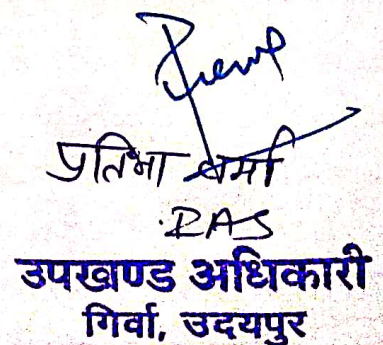 प्रतिभा वर्मा
RAS
उपखण्ड अधिकारी
गिर्वा, उदयपुर